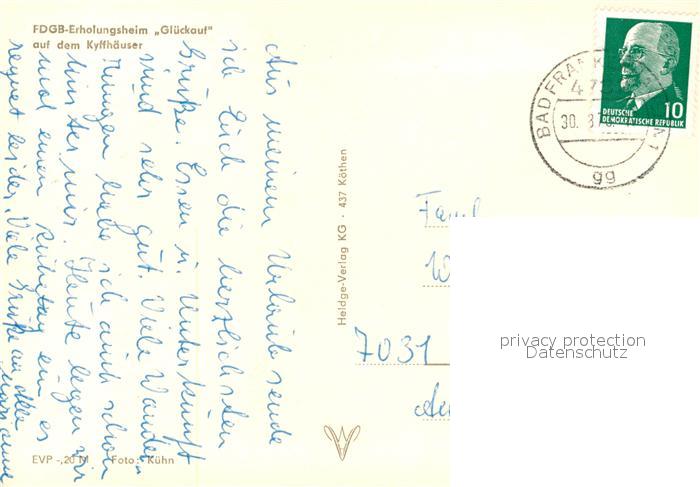 FDGB-Erholungsheim „Glückauf"
auf dem Kyffhäuser
Aus meinem Urlaub sende
ich Euch die herzlichsten
Grüße. Essen u. Unterkunft
sind sehr gut. Viele Wande-
rungen habe ich auch schon
hinter mir. Heute legen wir
mal einen Ruhetag ein, es
regnet leider. Viele Grüße an alle
Marianne
EVP -,20 M Foto: Kühn
Heidge-Verlag KG · 437 Köthen
BAD FRANK
47
30. 8.7
gg
DEUTSCHE
DEMOKRATISCHE REPUBLIK
10
Fam.
W
7031
privacy protection
Datenschutz